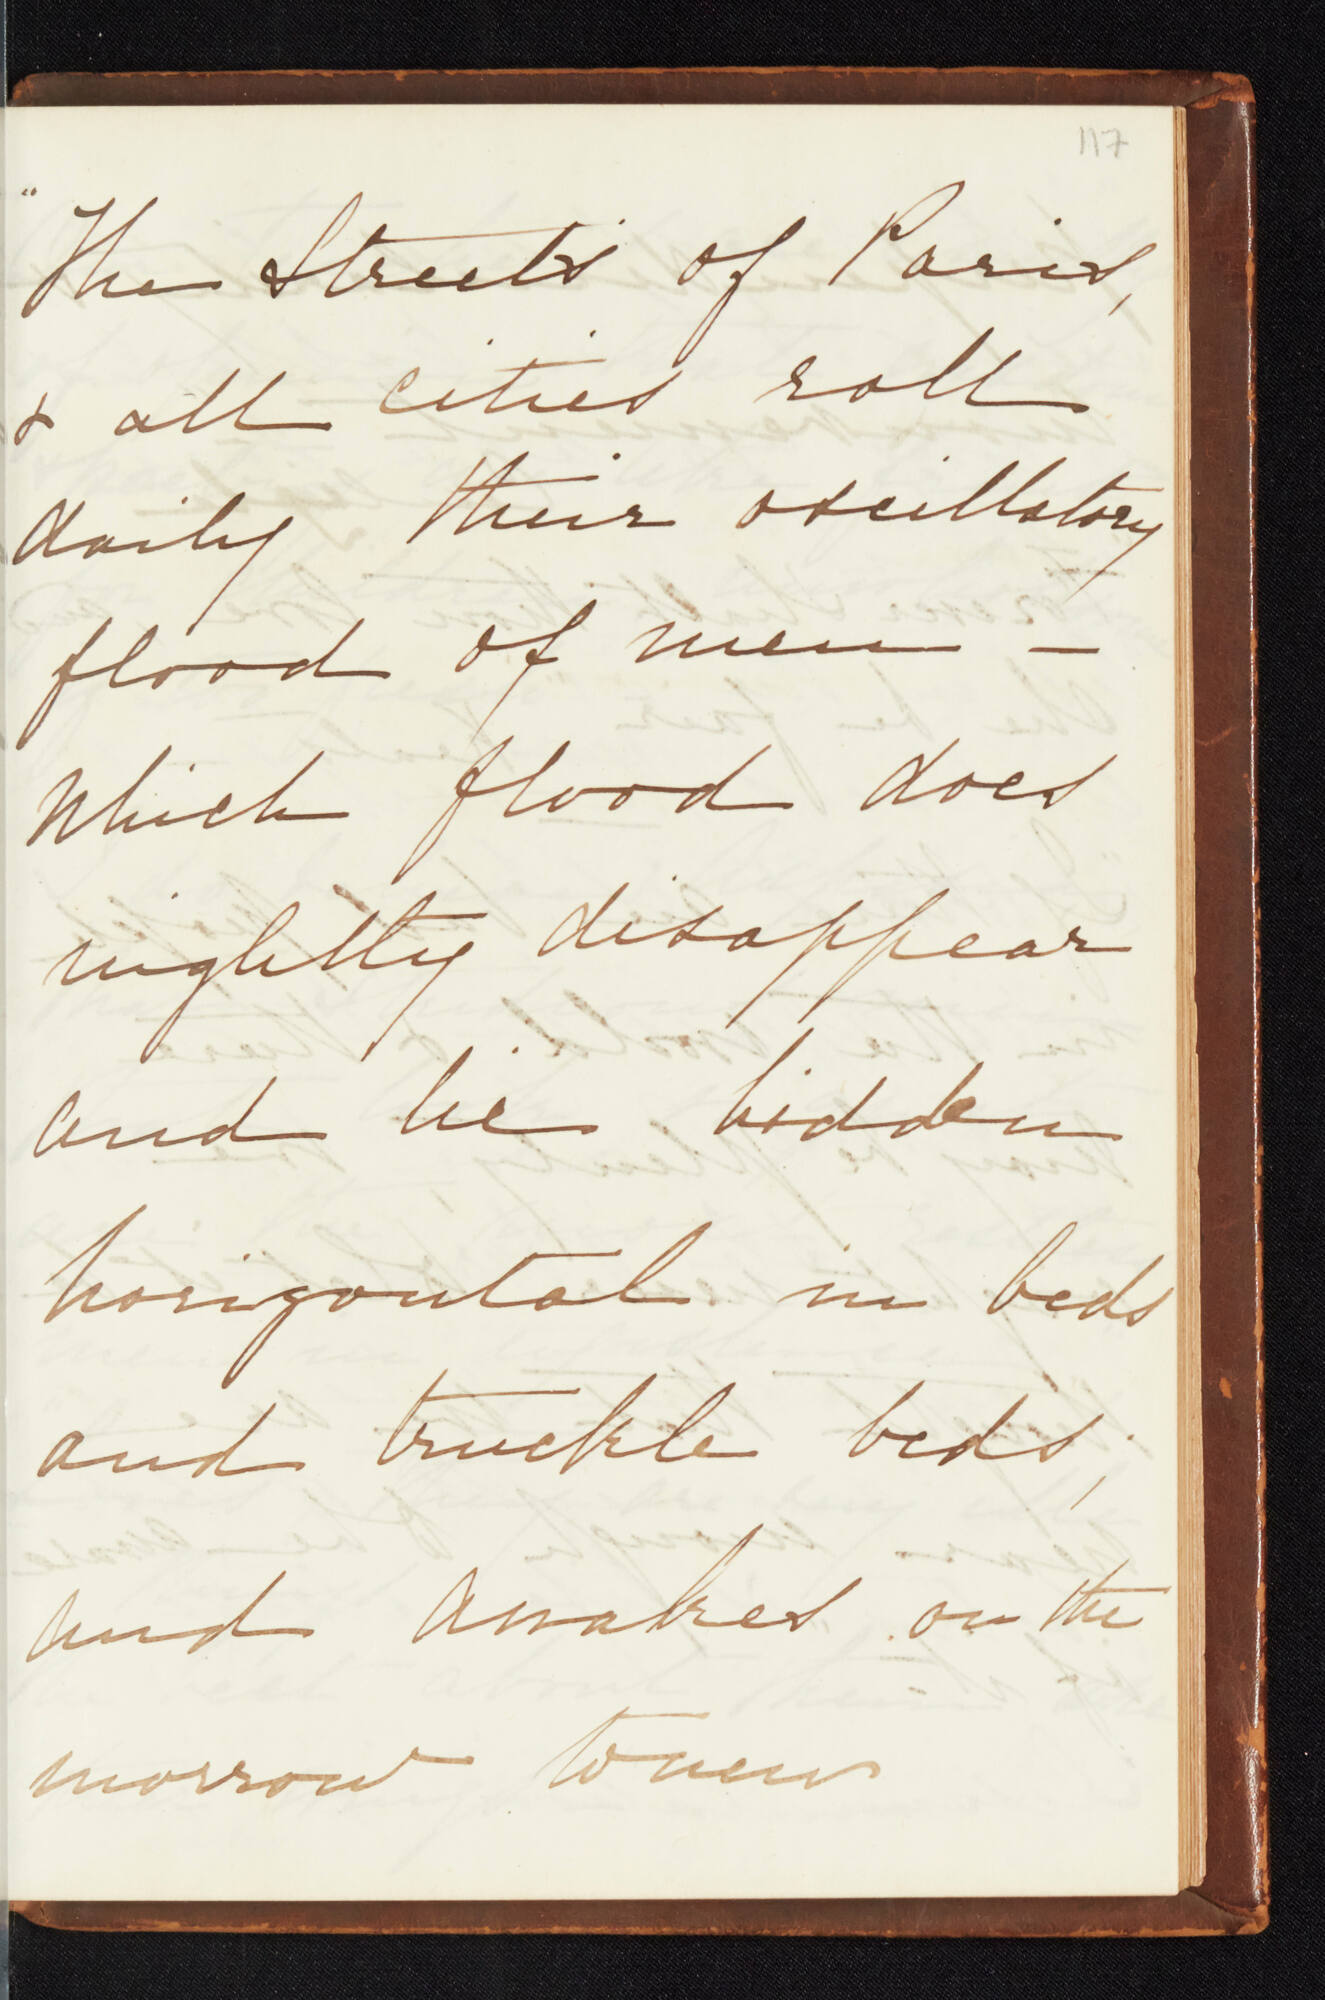 117
"The Streets of Paris,
& all cities roll
daily their oscillatory
flood of men –
which flood does
nightly disappear
and lie hidden
horizontal in beds
and truckle beds;
and awakes on the
morrow to new